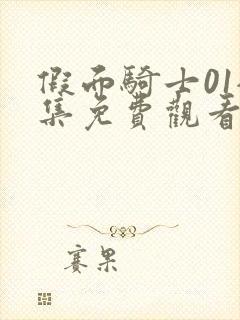 假面騎士01
集免費觀看
賽果